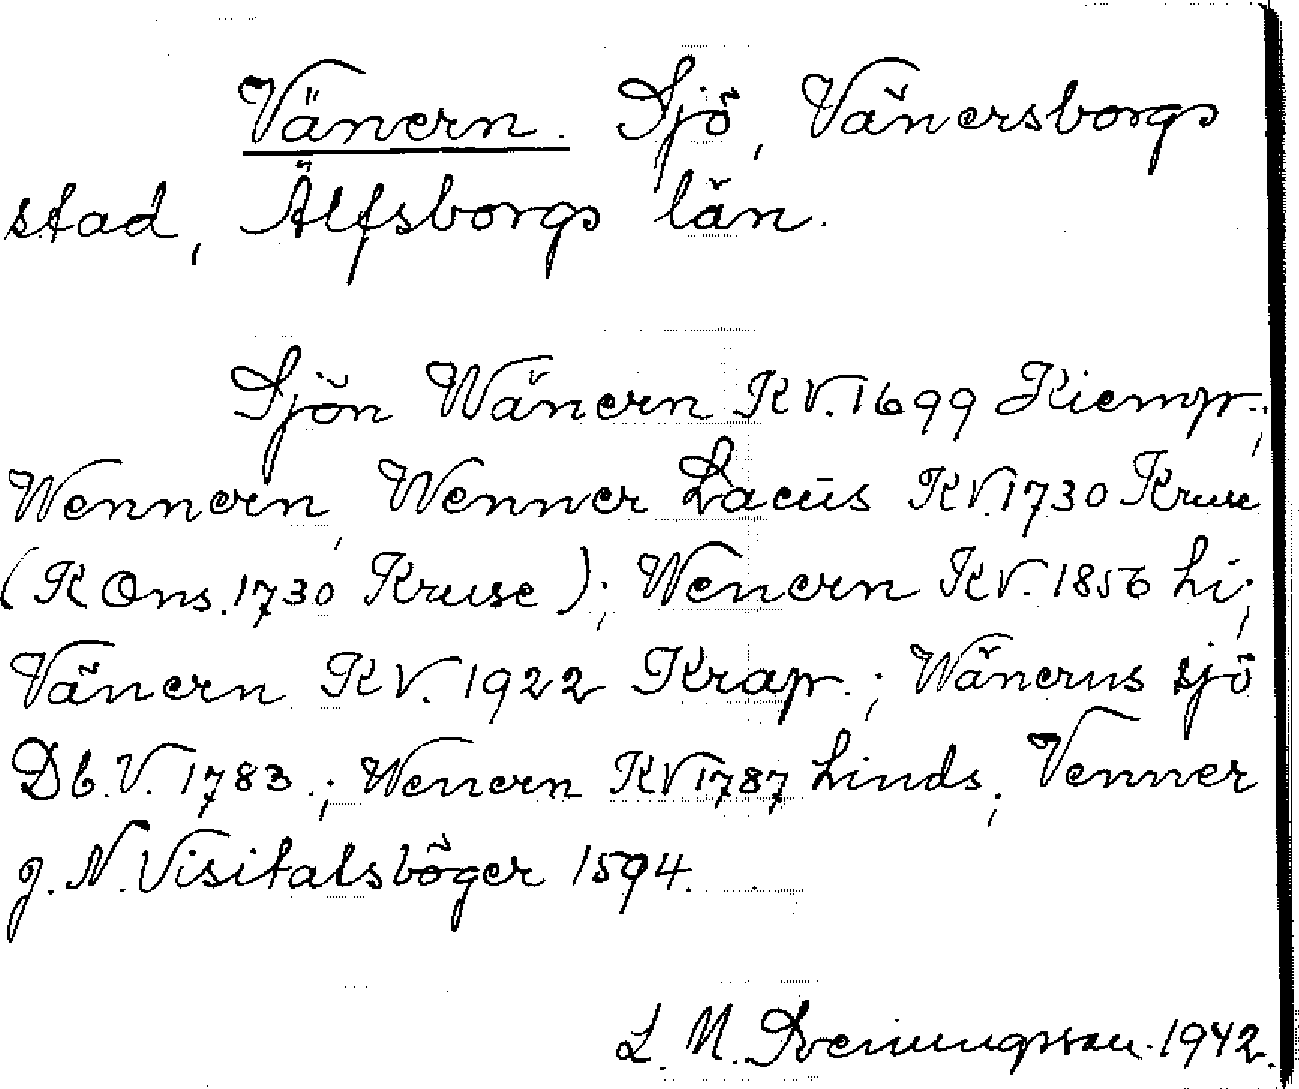 Vänern. Sjö, Vänersborgs
stad, Älfsborgs län.
Sjön Wänern KV. 1699 Kiemp.;
Wennern, Wenner Lacus KV. 1730 Kruse
(K Ons. 1730 Kruse); Wenern KV. 1856 Li;
Vänern KV. 1922 Krap.; Wänerns sjö
Db. V. 1783.; Wenern KV 1787 Linds; Venner
J. N. Visitatsböger 1594.
L. M. Svenungsson. 1942.